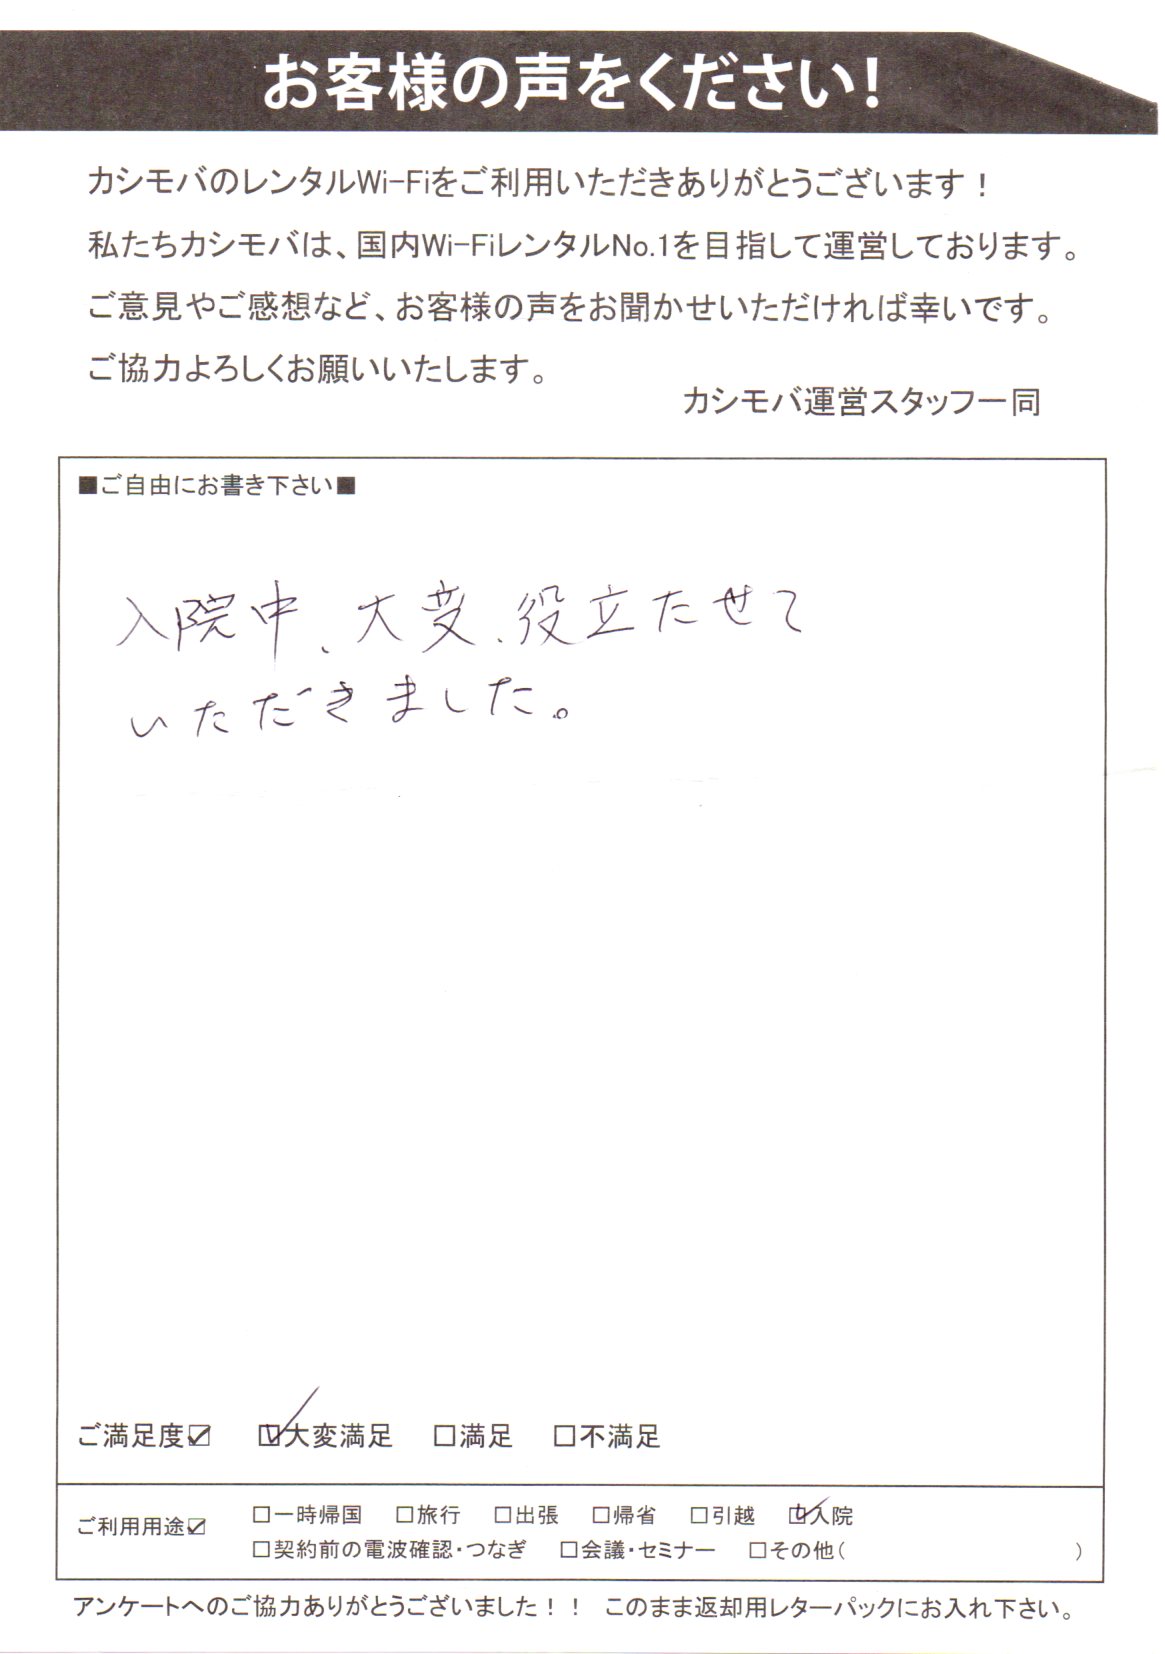 お客様の声をください!
カシモバのレンタルWi-Fiをご利用いただきありがとうございます！
私たちカシモバは、国内Wi-FiレンタルNo.1を目指して運営しております。
ご意見やご感想など、お客様の声をお聞かせいただければ幸いです。
ご協力よろしくお願いいたします。
カシモバ運営スタッフ一同
■ご自由にお書き下さい■
入院中、大変、役立たせて
いただきました。
ご満足度☑ ☑大変満足 □満足 □不満足
ご利用用途☑ □一時帰国 □旅行 □出張 □帰省 □引越 ☑入院
□契約前の電波確認・つなぎ □会議・セミナー □その他( )
アンケートへのご協力ありがとうございました！！ このまま返却用レターパックにお入れ下さい。